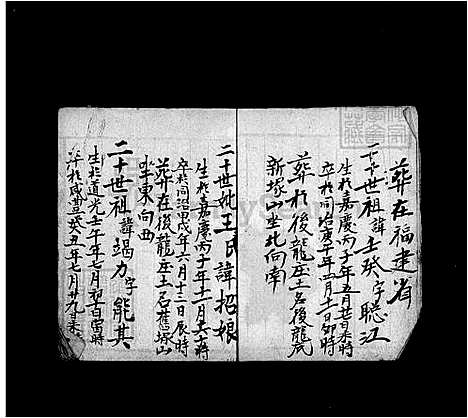 葬在福建省
二十世祖諱士珍字聰江
生於嘉慶丙子年五月廿日未時
卒於同治庚午年五月十一日卯時
葬於後龍座土名後龍
新塚山坐北向南
二十世妣王氏諱招娘
生於嘉慶丙子年十一月十六日亥時
卒於同治甲戌年六月十三日辰時
葬在後龍座土名舊塚山
坐東向西
二十世祖諱竭力字能其
生於道光壬午年七月初十日寅時
卒於咸豐癸丑年七月廿九日未時